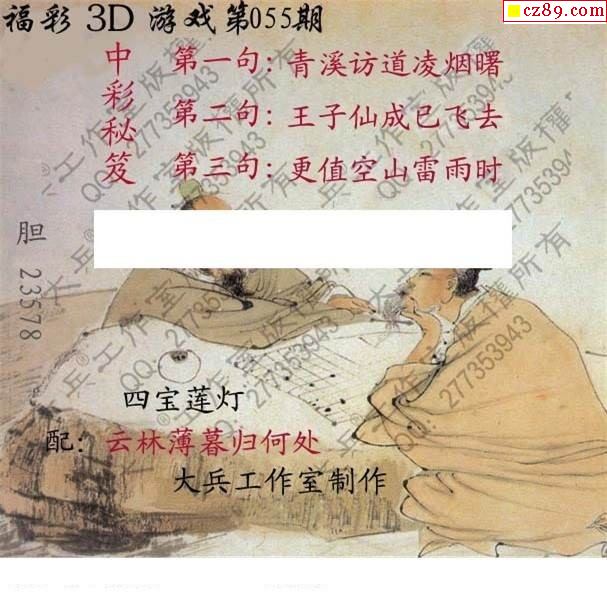 福彩 3D 游戏第055期
cz89.com
中彩秘笈
第一句：青溪访道凌烟曙
第二句：王子仙成已飞去
第三句：更值空山雷雨时
胆 23578
四宝莲灯
配：云林薄暮归何处
大兵工作室制作
大兵®工作室版權所有
QQ：277353943